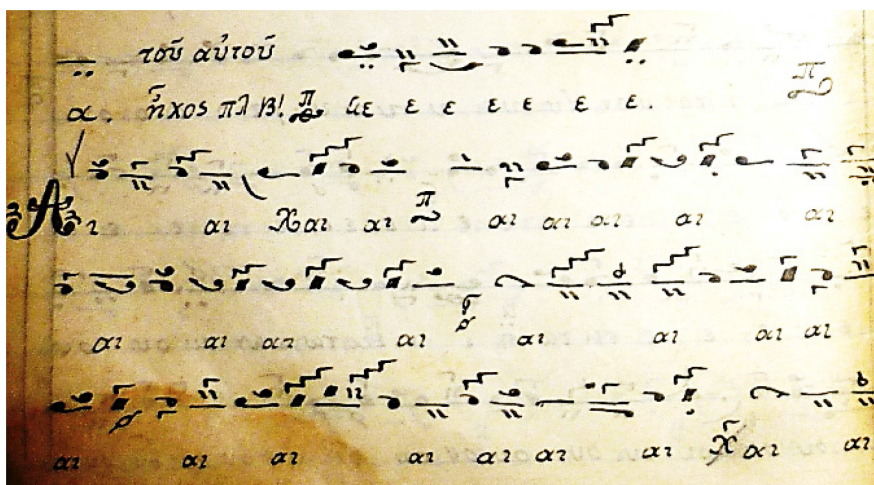 τοῦ αὐτοῦ
α. ἦχος πλ β! π ἀε ε ε ε ε ε ε.
π
Αι αι Χαι αι π αι αι αι αι αι
αι αι αι αι αι αι αι αι
αι αι αι αι αι αι αι χ αι αι